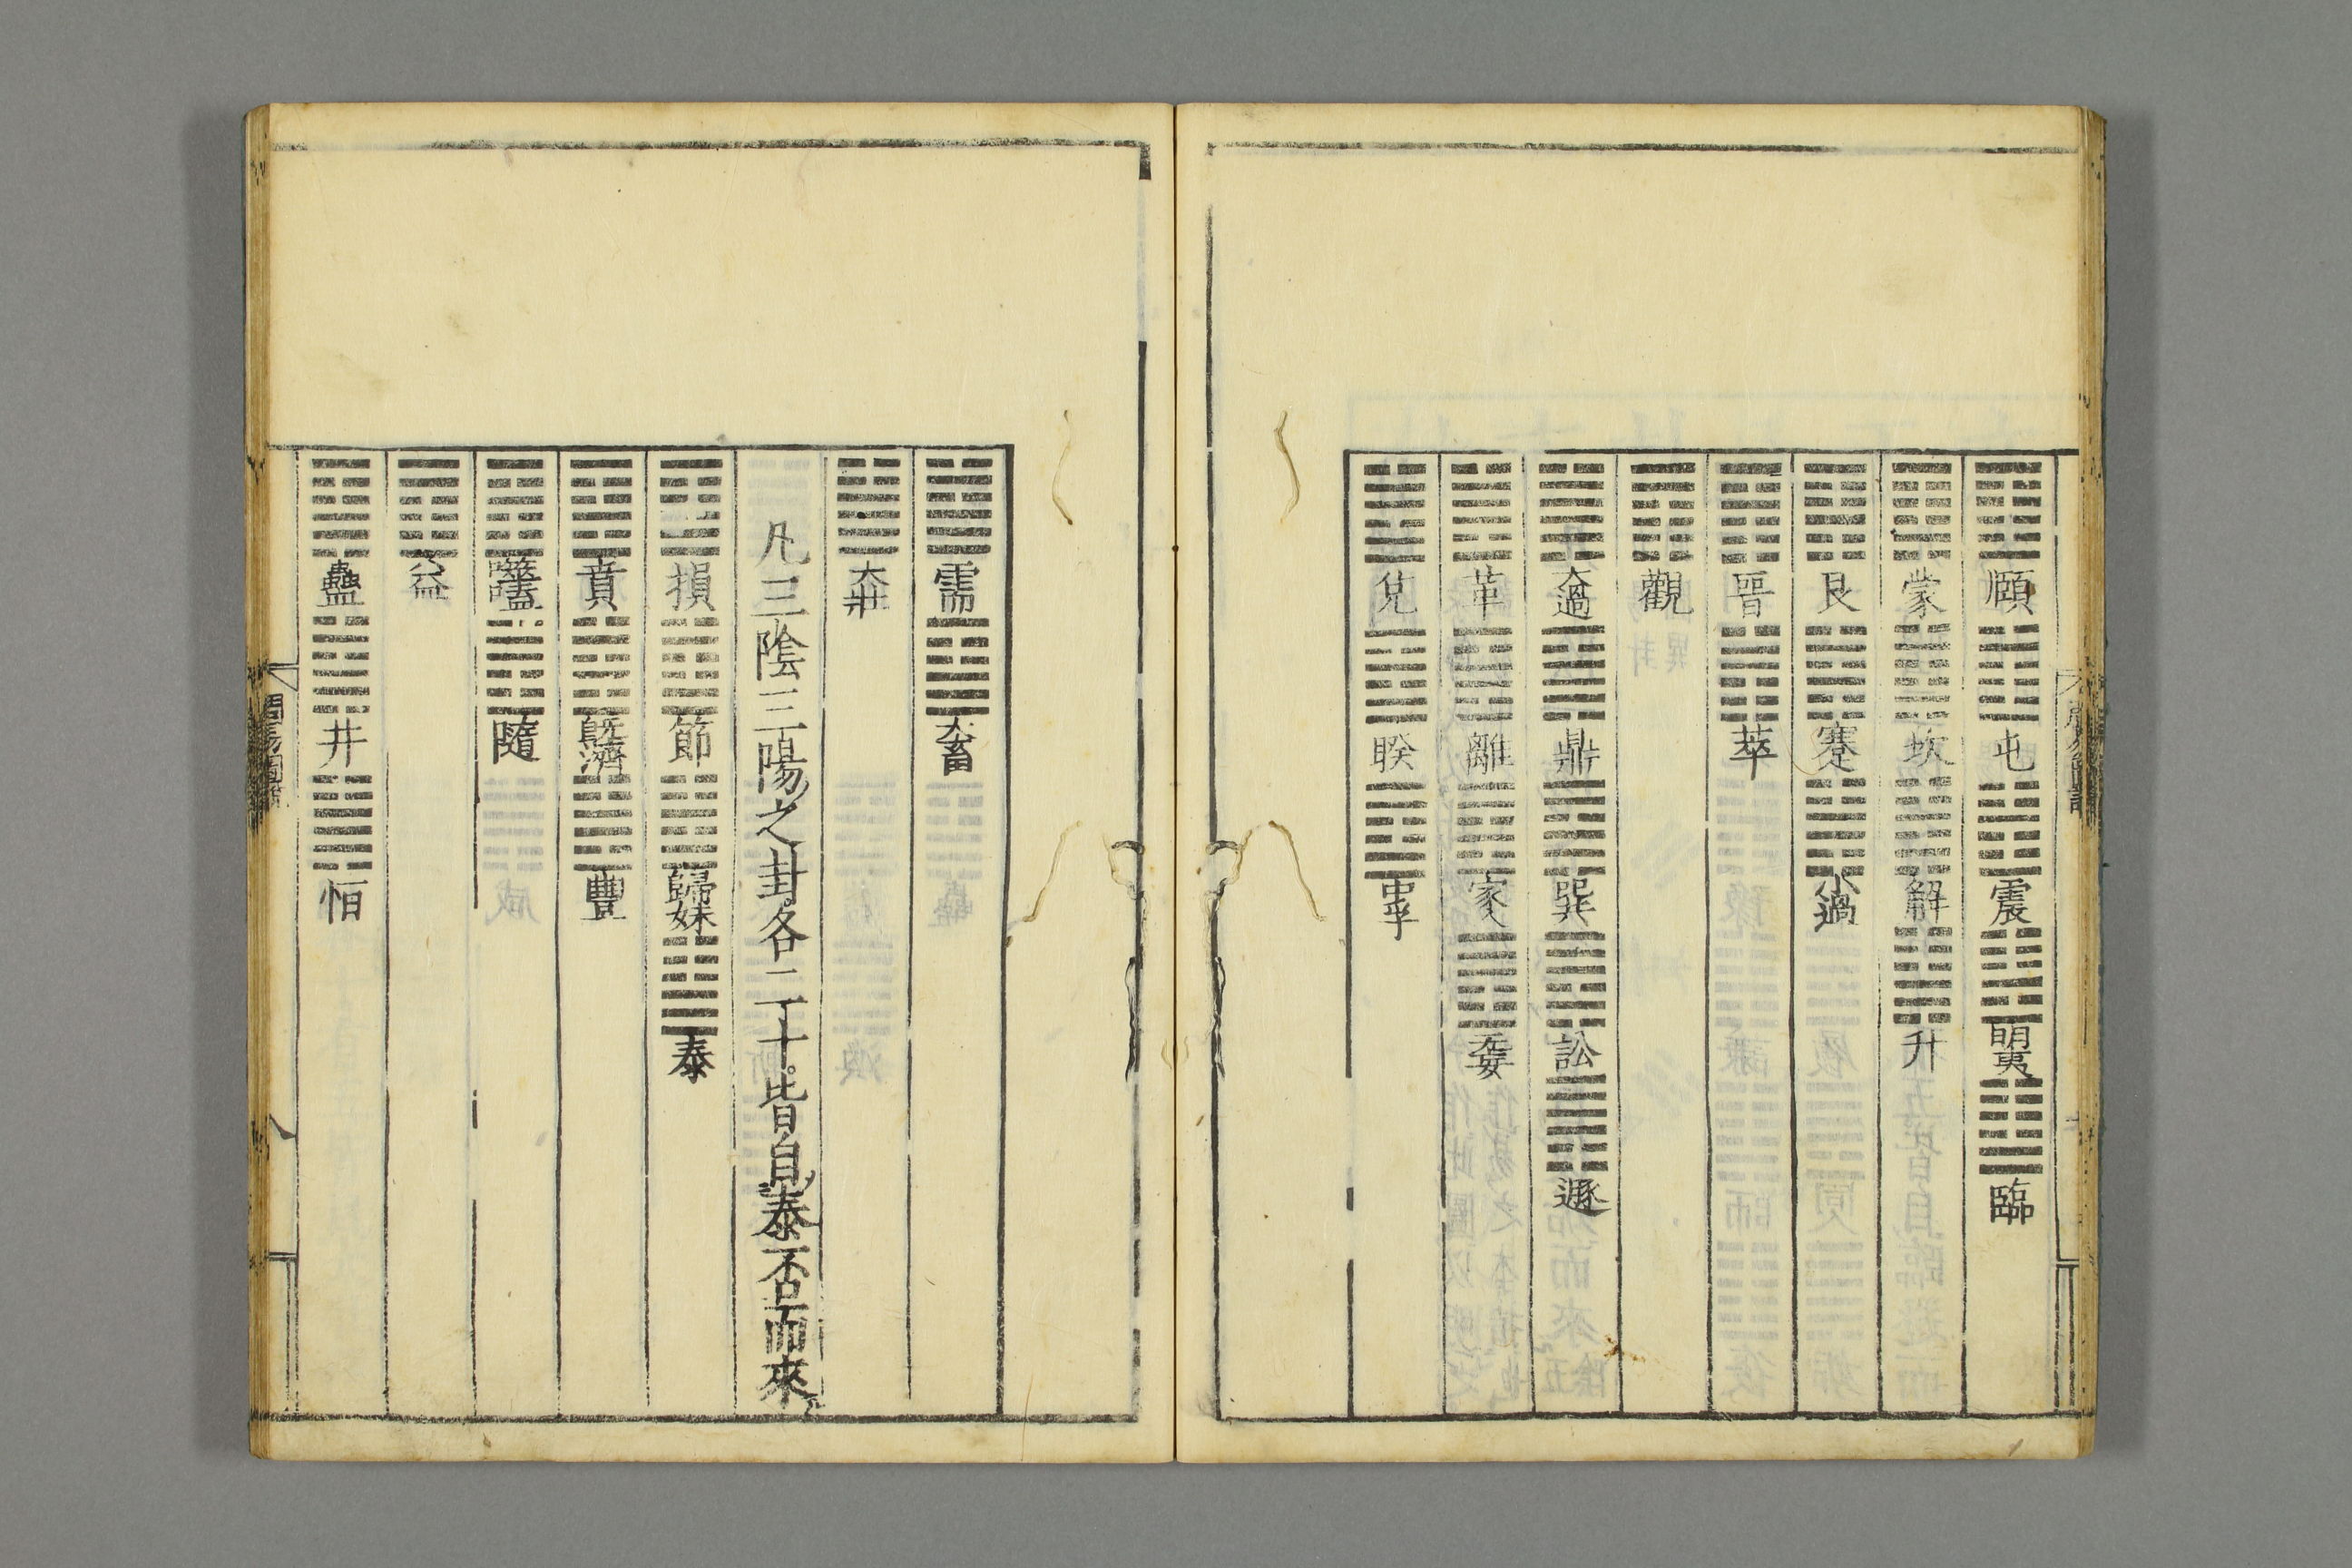 頤 屯 震 明夷 臨
蒙 坎 解 升
艮 蹇 小過
晉 萃
觀
大過 鼎 巽 訟 遯
革 離 家人 无妄
兌 睽 中孚
需 大畜
大壯
凡三陰三陽之卦各二十皆自泰否而來
損 節 歸妹 泰
賁 旣濟 豐
噬嗑 隨
益
蠱 井 恒
周易圖